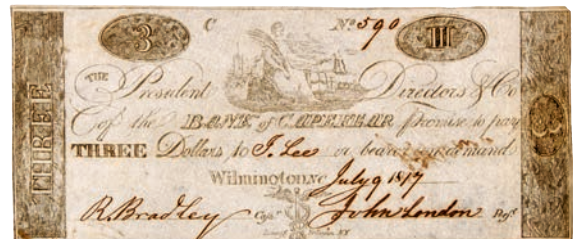 3 C No 590 III
THE President Directors & Co
of the BANK of CAPE FEAR promise to pay
THREE Dollars to J. Lee or bearer on demand
Wilmington NC July 9 1817
R. Bradley Cash.r John London Pres.t
THREE
3